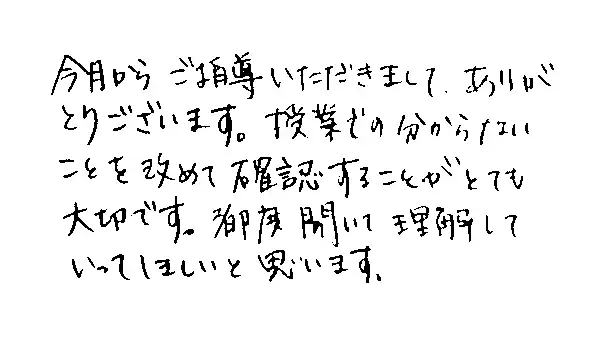 今月から ご指導いただきまして、ありが
とりございます。授業での分からない
ことを改めて確認することがとても
大切です。都度聞いて理解して
いってほしいと思います。